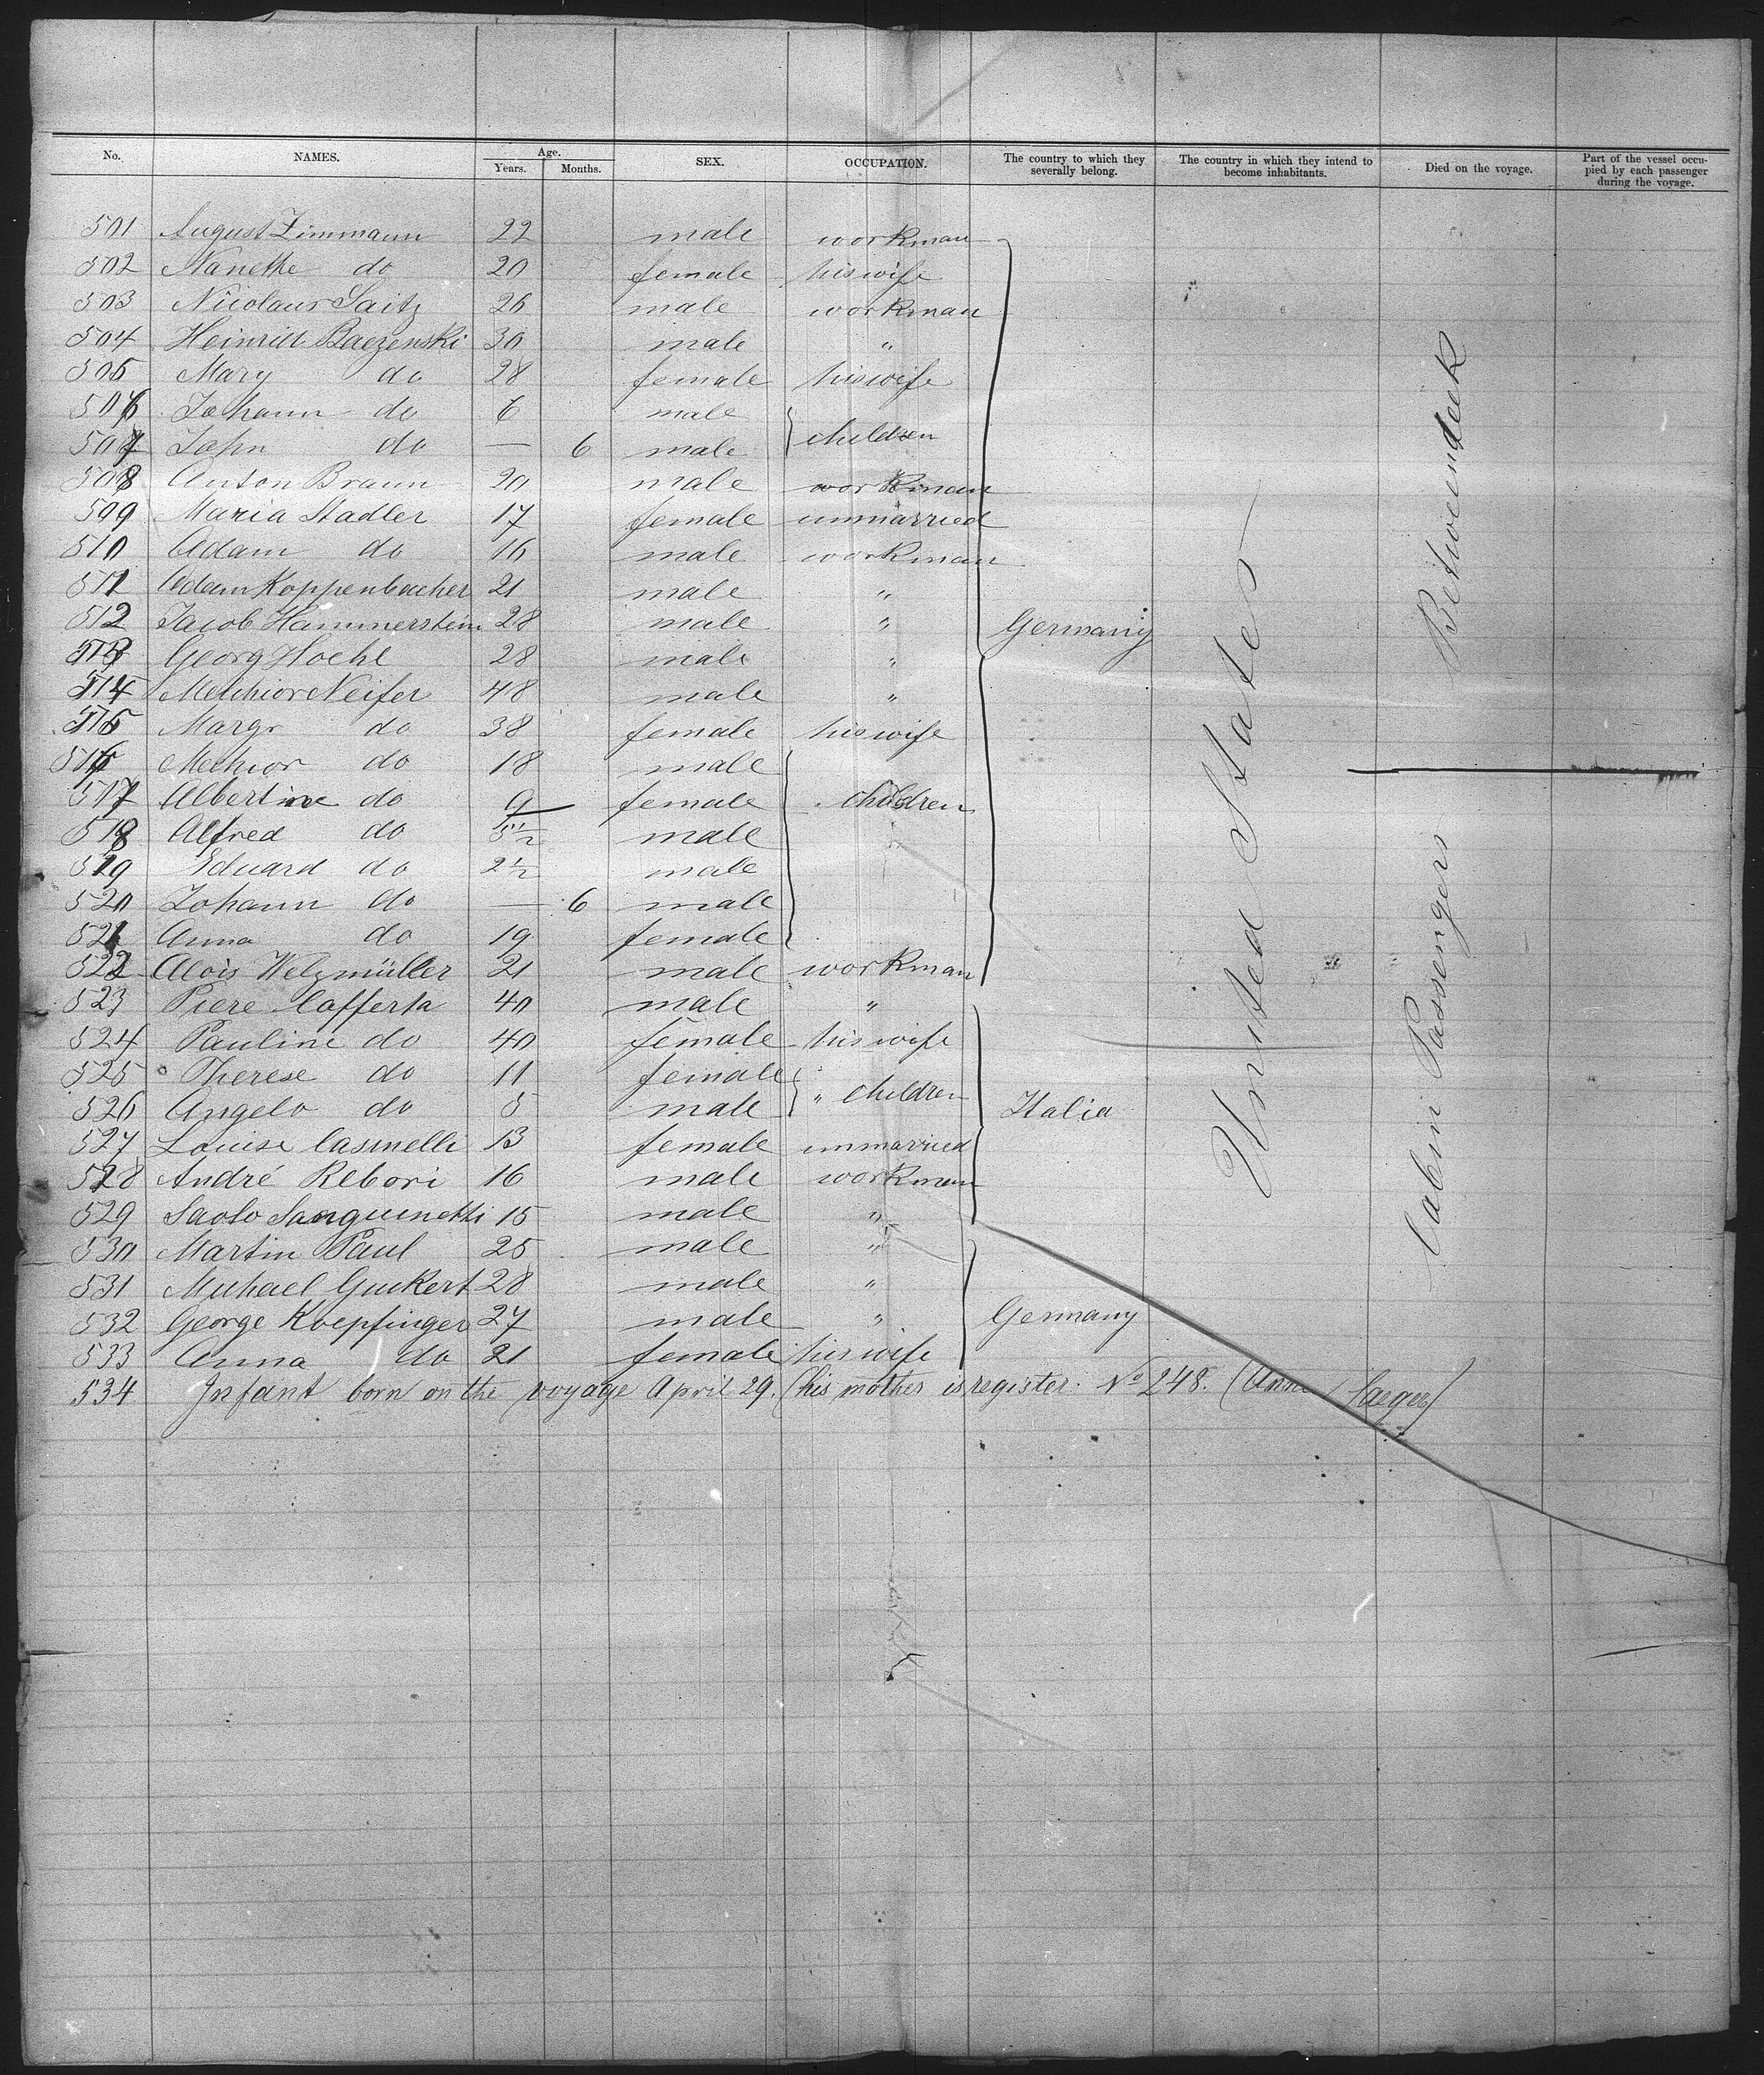 No. NAMES. Age. Years. Months. SEX. OCCUPATION. The country to which they severally belong. The country in which they intend to become inhabitants. Died on the voyage. Part of the vessel occupied by each passenger during the voyage.
501 August Zimmann 22 male workman
502 Nanethe do 20 female his wife
503 Nicolaus Saitz 26 male workman
504 Heinrich Baezenski 30 male "
505 Mary do 28 female his wife
506 Johann do 6 male
507 John do — 6 male children
508 Anton Braun 20 male workman
509 Maria Stadler 17 female unmarried
510 Adam do 16 male workman
511 Adam Koppenbacher 21 male "
512 Jacob Hammerstein 28 male " Germany
513 Georg Hoehl 28 male "
514 Melchior Neifer 48 male "
515 Margr do 38 female his wife
516 Melhior do 18 male
517 Albertine do 9 female children
518 Alfred do 5 1/2 male
519 Eduard do 2 1/2 male
520 Johann do — 6 male
521 Anna do 19 female
522 Alois Welzmüller 21 male workman
523 Piere Cafferta 40 male "
524 Pauline do 40 female his wife
525 Therese do 11 female
526 Angelo do 5 male " children Italia
527 Louise Casinelli 13 female unmarried
528 André Rebori 16 male workman
529 Saolo Sanguinetti 15 male "
530 Martin Paul 25 male "
531 Michael Guckert 28 male "
532 George Koepfinger 27 male " Germany
533 Anna do 21 female his wife
534 Infant born on the voyage April 29. (his mother is register. No 248. (Anna Saeger)
United States
Betweendeck
Cabin Passengers